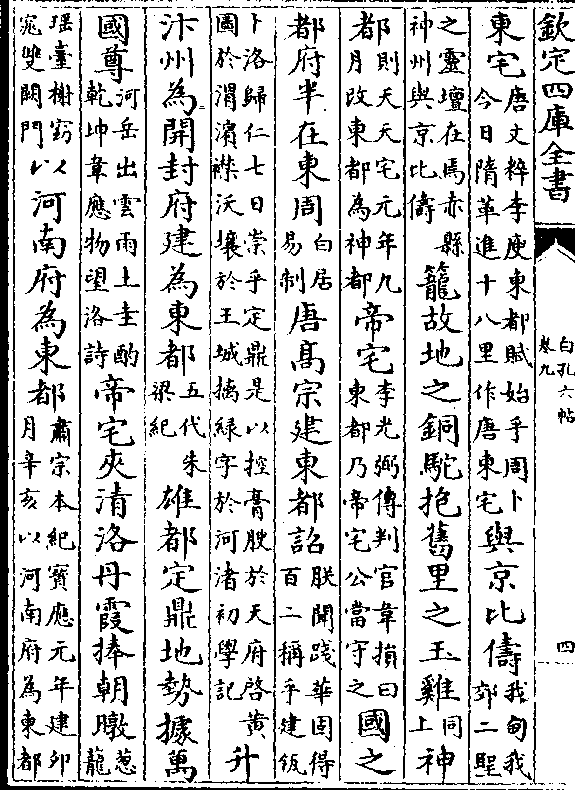 欽定四庫全書
白孔六帖
卷九
四
東宅唐文粹李庾東都賦始乎周卜今日隋革進十八里作唐東宅與京比儔我甸我郊二聖
之靈壇在焉赤縣神州與京比儔籠故地之銅駝抱舊里之玉雞同上神
都則天天宅元年九月改東都為神都帝宅李光弼傳判官韋損曰東都乃帝宅公當守之國之
都府半在東周白居易制唐髙宗建東都詔朕聞踐華固得百二稱乎建瓴
卜洛歸仁七日崇乎定鼎是以控膏腴於天府啓黄圖於渭濱襟沃壤於王城摛緑字於河渚初學記升
汴州為開封府建為東都五代朱梁紀雄都定鼎地勢據萬
國尊河岳出雲雨上圭酌乾坤韋應物望洛詩帝宅夾清洛丹霞捧朝暾葱龍
瑶臺榭窈窕雙闕門以河南府為東都肅宗本紀寶應元年建卯月辛亥以河南府為東都